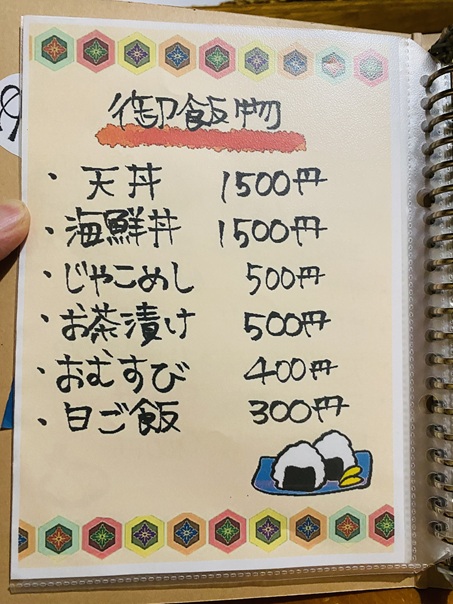 御飯物
・天丼 1500円
・海鮮丼 1500円
・じゃこめし 500円
・お茶漬け 500円
・おむすび 400円
・白ご飯 300円